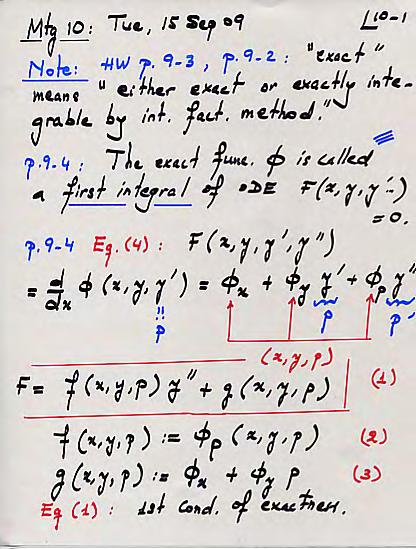 Mtg 10: Tue, 15 Sep 09
L10-1
Note: HW p. 9-3, p. 9-2: "exact"
means "either exact or exactly inte-
grable by int. fact. method."
p. 9-4: The exact func. ϕ is called
a first integral of ODE F(x, y, y'..)
= 0.
p. 9-4 Eq. (4): F(x, y, y', y'')
= d/dx ϕ(x, y, y') = ϕx + ϕy y' + ϕp y''
p p p'
(x, y, p)
F = f(x, y, p) y'' + g(x, y, p) (1)
f(x, y, p) := ϕp (x, y, p) (2)
g(x, y, p) := ϕx + ϕy p (3)
Eq (1): 1st cond. of exactness.